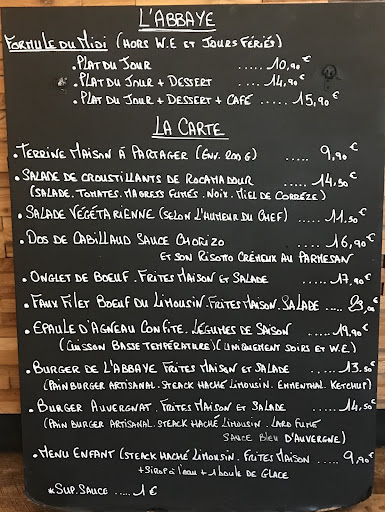 L'ABBAYE
FORMULE DU MIDI (HORS W.E ET JOURS FÉRIÉS)
. PLAT DU JOUR ..... 10,90€
. PLAT DU JOUR + DESSERT .... 14,90€
. PLAT DU JOUR + DESSERT + CAFÉ .... 15,90€
LA CARTE
. TERRINE MAISON À PARTAGER (ENV. 200 G) ..... 9,90€
. SALADE DE CROUSTILLANTS DE ROCAMADOUR ..... 14,50€
(SALADE. TOMATES. MAGRETS FUMÉS. NOIX. MIEL DE CORRÈZE)
. SALADE VÉGÉTARIENNE (SELON L'HUMEUR DU CHEF) .... 11.50€
. DOS DE CABILLAUD SAUCE CHORIZO .... 16,90€
ET SON RISOTTO CRÉMEUX AU PARMESAN
. ONGLET DE BOEUF. FRITES MAISON ET SALADE ..... 17,90€
. FAUX FILET BOEUF DU LIMOUSIN. FRITES MAISON. SALADE ....
. EPAULE D'AGNEAU CONFITE. LÉGUMES DE SAISON .... 19.90€
(CUISSON BASSE TEMPÉRATURE) (UNIQUEMENT SOIRS ET W.E)
. BURGER DE L'ABBAYE FRITES MAISON ET SALADE ..... 13.50€
(PAIN BURGER ARTISANAL. STEACK HACHÉ LIMOUSIN. EMMENTHAL. KETCHUP)
. BURGER AUVERGNAT. FRITES MAISON ET SALADE ..... 14,50€
(PAIN BURGER ARTISANAL. STEACK HACHÉ LIMOUSIN. LARD FUMÉ
SAUCE BLEU D'AUVERGNE)
. MENU ENFANT (STEACK HACHÉ LIMOUSIN. FRITES MAISON ..... 9,90€
+ SIROP À L'EAU + 1 BOULE DE GLACE
*SUP. SAUCE ..... 1€